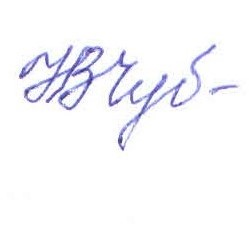 НВЧуб-